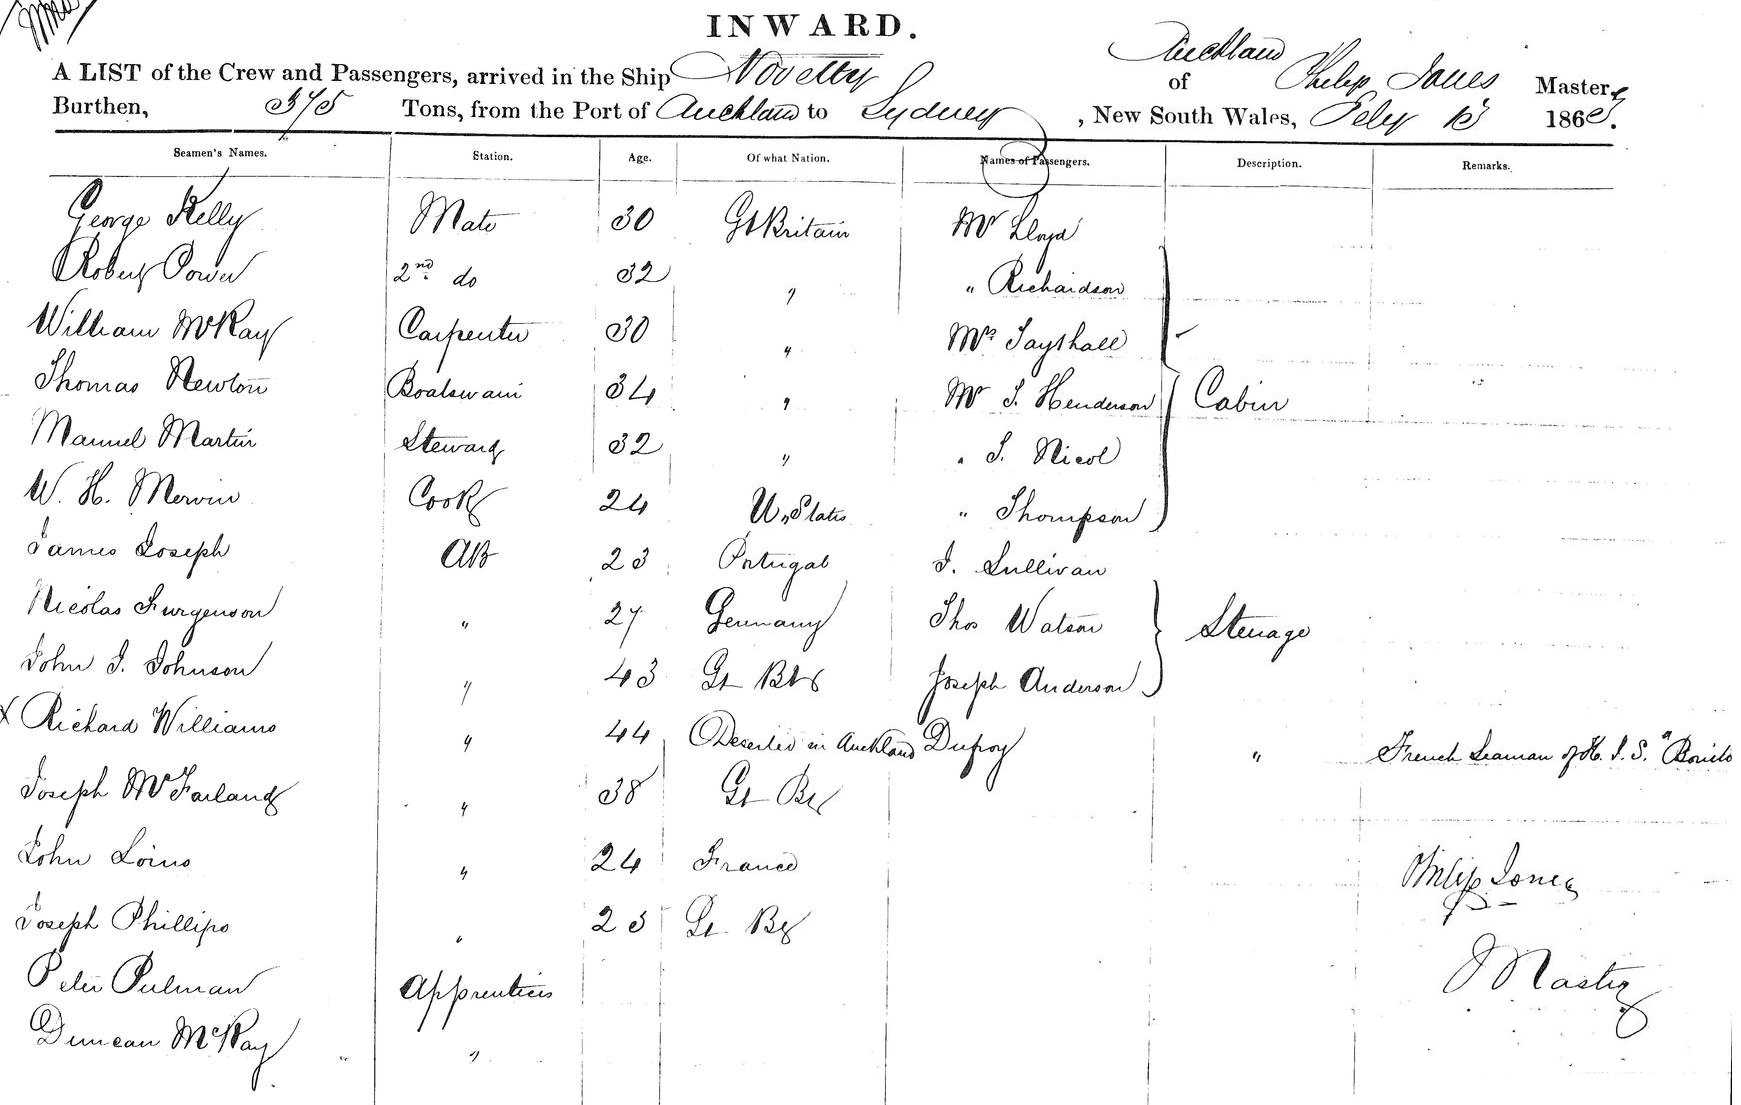 INWARD.
Auckland
A LIST of the Crew and Passengers, arrived in the Ship Novelty of Philip Jones Master,
Burthen, 375 Tons, from the Port of Auckland to Sydney, New South Wales, Feby 13 1863.
Seamen's Names. Station. Age. Of what Nation. Names of Passengers. Description. Remarks.
George Kelly Mate 30 Gt Britain Mr Lloyd
Robert Power 2nd do 32 " " Richardson
William McKay Carpenter 30 " Mrs
Thomas Newton Boatswain 34 " Mr J. Henderson Cabin
Manuel Martin Steward 32 " " J. Nicol
W. H. Mervin Cook 24 U. States " Thompson
James Joseph AB 23 Portugal J. Sullivan
Nicolas Jurgenson " 27 Germany Thos Watson Steerage
John J. Johnson " 43 Gt Bt Joseph Anderson
X Richard Williams " 44 Deserted in Auckland Dufroy " French Seaman of H. I. S. "
Joseph McFarland " 38 Gt Bt
John " 24 France Philip Jones
Joseph Phillips " 23 Gt Bt
Peter Pulman Apprentices Master
Duncan McKay "